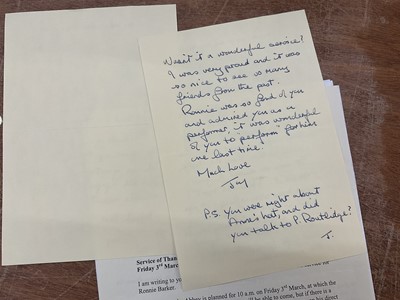 Wasn't it a wonderful service?
I was very proud and it was
so nice to see so many
friends from the past.
Ronnie was so fond of you
and admired you as a
performer, it was wonderful
of you to "perform" for him
one last time.
Much Love
Joy
P.S. You were right about
Annie's hat, and did
you talk to P. Routledge?
J.
Service of Than
Friday 3rd March,
I am writing to yo
Ronnie Barker.
Abbey is planned for 10 a.m. on Friday 3rd March, at which the
will be able to come, but if there is a
his direct